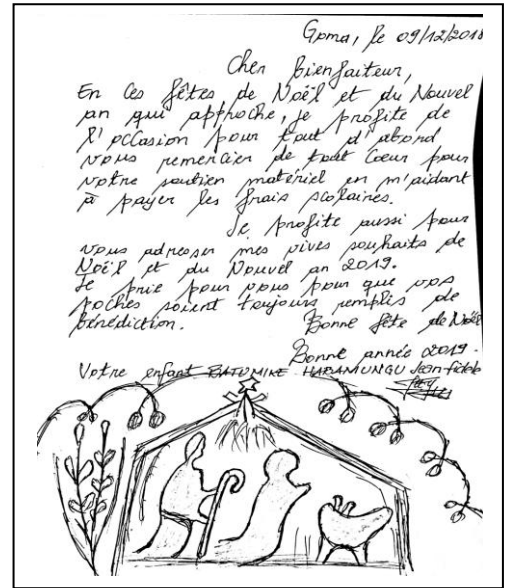 Goma, le 09/12/2018
Cher bienfaiteur,
En ces fêtes de Noël et du Nouvel
an qui approche, je profite de
l'occasion pour tout d'abord
vous remercier de tout coeur pour
votre soutien matériel en m'aidant
à payer les frais scolaires.
Je profite aussi pour
vous adresser mes vives souhaits de
Noël et du Nouvel an 2019.
Je prie pour vous pour que vos
poches soient toujours remplies de
bénédiction.
Bonne fête de Noël
Bonne année 2019.
Votre enfant BATUMIKE HABAMUNGU Jean-fidèle